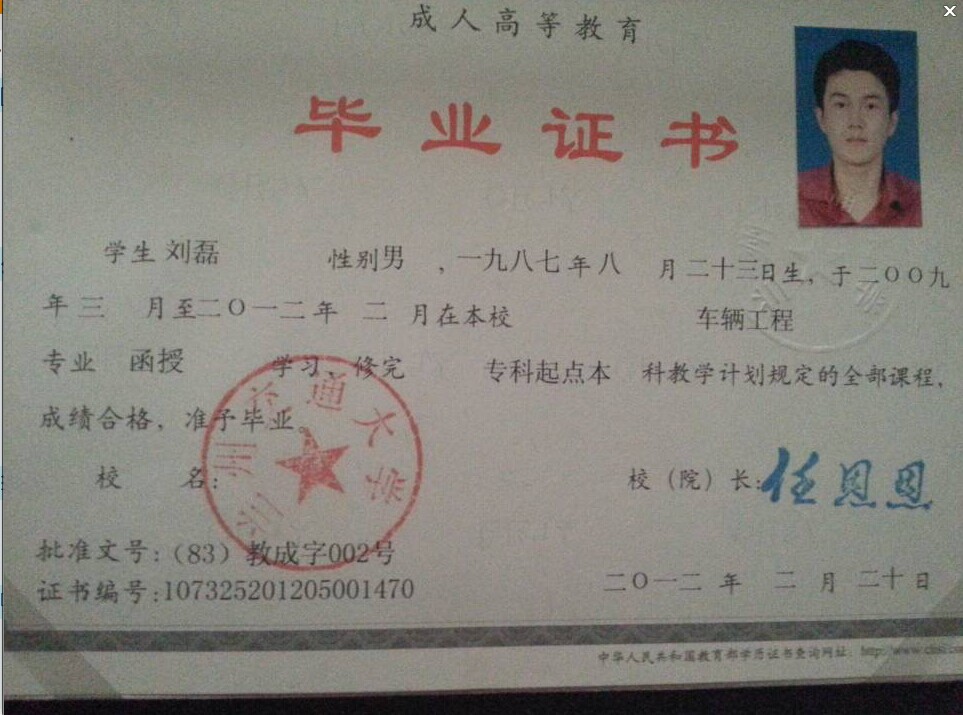 成人高等教育
毕业证书
学生 刘磊 性别男 ，一九八七年八 月二十三日生，于二〇〇九
年三 月至二〇一二年 二 月在本校 车辆工程
专业 函授 学习，修完 专科起点本 科教学计划规定的全部课程，
成绩合格，准予毕业。
兰州交通大学
校 名： 校（院）长：任恩恩
批准文号：（83）教成字002号
证书编号：107325201205001470 二〇一二 年 二 月 二十 日
中华人民共和国教育部学历证书查询网址：http://www.chsi.com